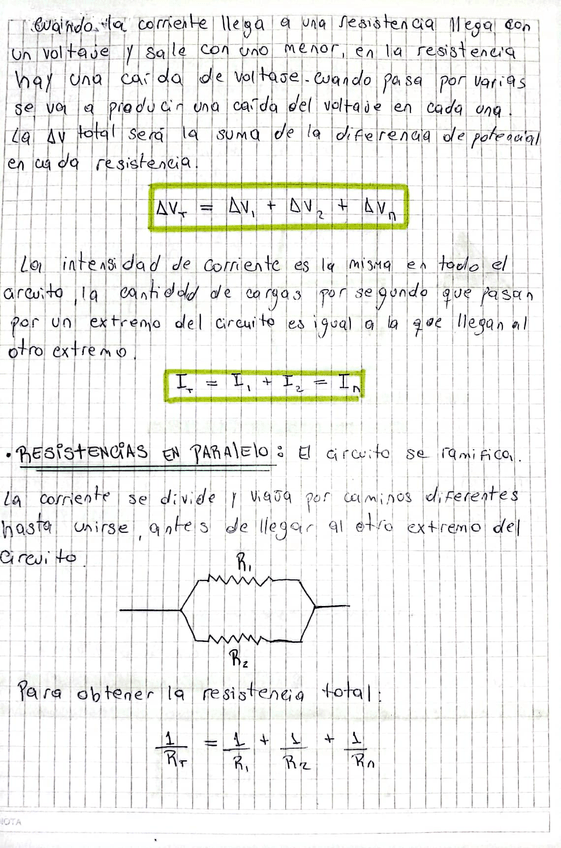 Cuando la corriente llega a una resistencia llega con
un voltaje y sale con uno menor, en la resistencia
hay una caída de voltaje. Cuando pasa por varias
se va a producir una caída del voltaje en cada una.
La ΔV total será la suma de la diferencia de potencial
en cada resistencia.
ΔV_T = ΔV_1 + ΔV_2 + ΔV_n
La intensidad de corriente es la misma en todo el
circuito, la cantidad de cargas por segundo que pasan
por un extremo del circuito es igual a la que llegan al
otro extremo.
I_T = I_1 + I_2 = I_n
• RESISTENCIAS EN PARALELO: El circuito se ramifica.
La corriente se divide y viaja por caminos diferentes
hasta unirse, antes de llegar al otro extremo del
circuito.
R_1
R_2
Para obtener la resistencia total:
1/R_T = 1/R_1 + 1/R_2 + 1/R_n
NOTA